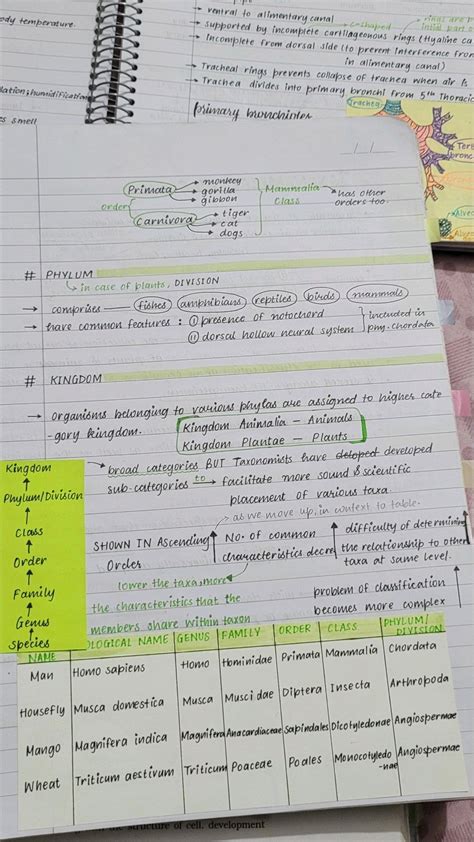 ody temperature.
→ ventral to alimentary canal
→ supported by incomplete cartilagenous rings (Hyaline ca
C-shaped
rings are
→ incomplete from dorsal side (to prevent interference from
in alimentary canal)
→ Tracheal rings prevents collapse of trachea when air is
→ Trachea divides into primary bronchi from 5th Thorac
primary bronchioles
Trachea
s smell
order
Primata → monkey
→ gorilla
→ gibbon
Carnivora → tiger
→ cat
→ dogs
Mammalia class
→ has other orders too.
# PHYLUM
↳ in case of plants, DIVISION
→ comprises — fishes amphibians reptiles birds mammals
→ have common features : ① presence of notochord
② dorsal hollow neural system
included in phy. chordata
# KINGDOM
→ organisms belonging to various phylas are assigned to higher cate
-gory kingdom.
Kingdom Animalia — Animals
Kingdom Plantae — Plants
→ broad categories BUT Taxonomists have developed
sub-categories to → facilitate more sound & scientific
placement of various taxa.
→ as we move up, in context to table.
Kingdom
↑
Phylum/Division
↑
Class
↑
Order
↑
Family
↑
Genus
↑
Species
SHOWN IN Ascending Order ↑
No. of common characteristics decre
↑ difficulty of determining
the relationship to other
taxa at same level.
lower the taxa, more
the characteristics that the
members share within taxon
problem of classification
becomes more complex ↑
NAME OLOGICAL NAME GENUS FAMILY ORDER CLASS PHYLUM/ DIVISION
Man Homo sapiens Homo Hominidae Primata Mammalia Chordata
Housefly Musca domestica Musca Musci dae Diptera Insecta Arthropoda
Mango Magnifera indica Magnifera Anacardiaceae Sapindales Dicotyledonae Angiospermae
Wheat Triticum aestivum Triticum Poaceae Poales Monocotyledo -nae Angiospermae
structure of cell, development